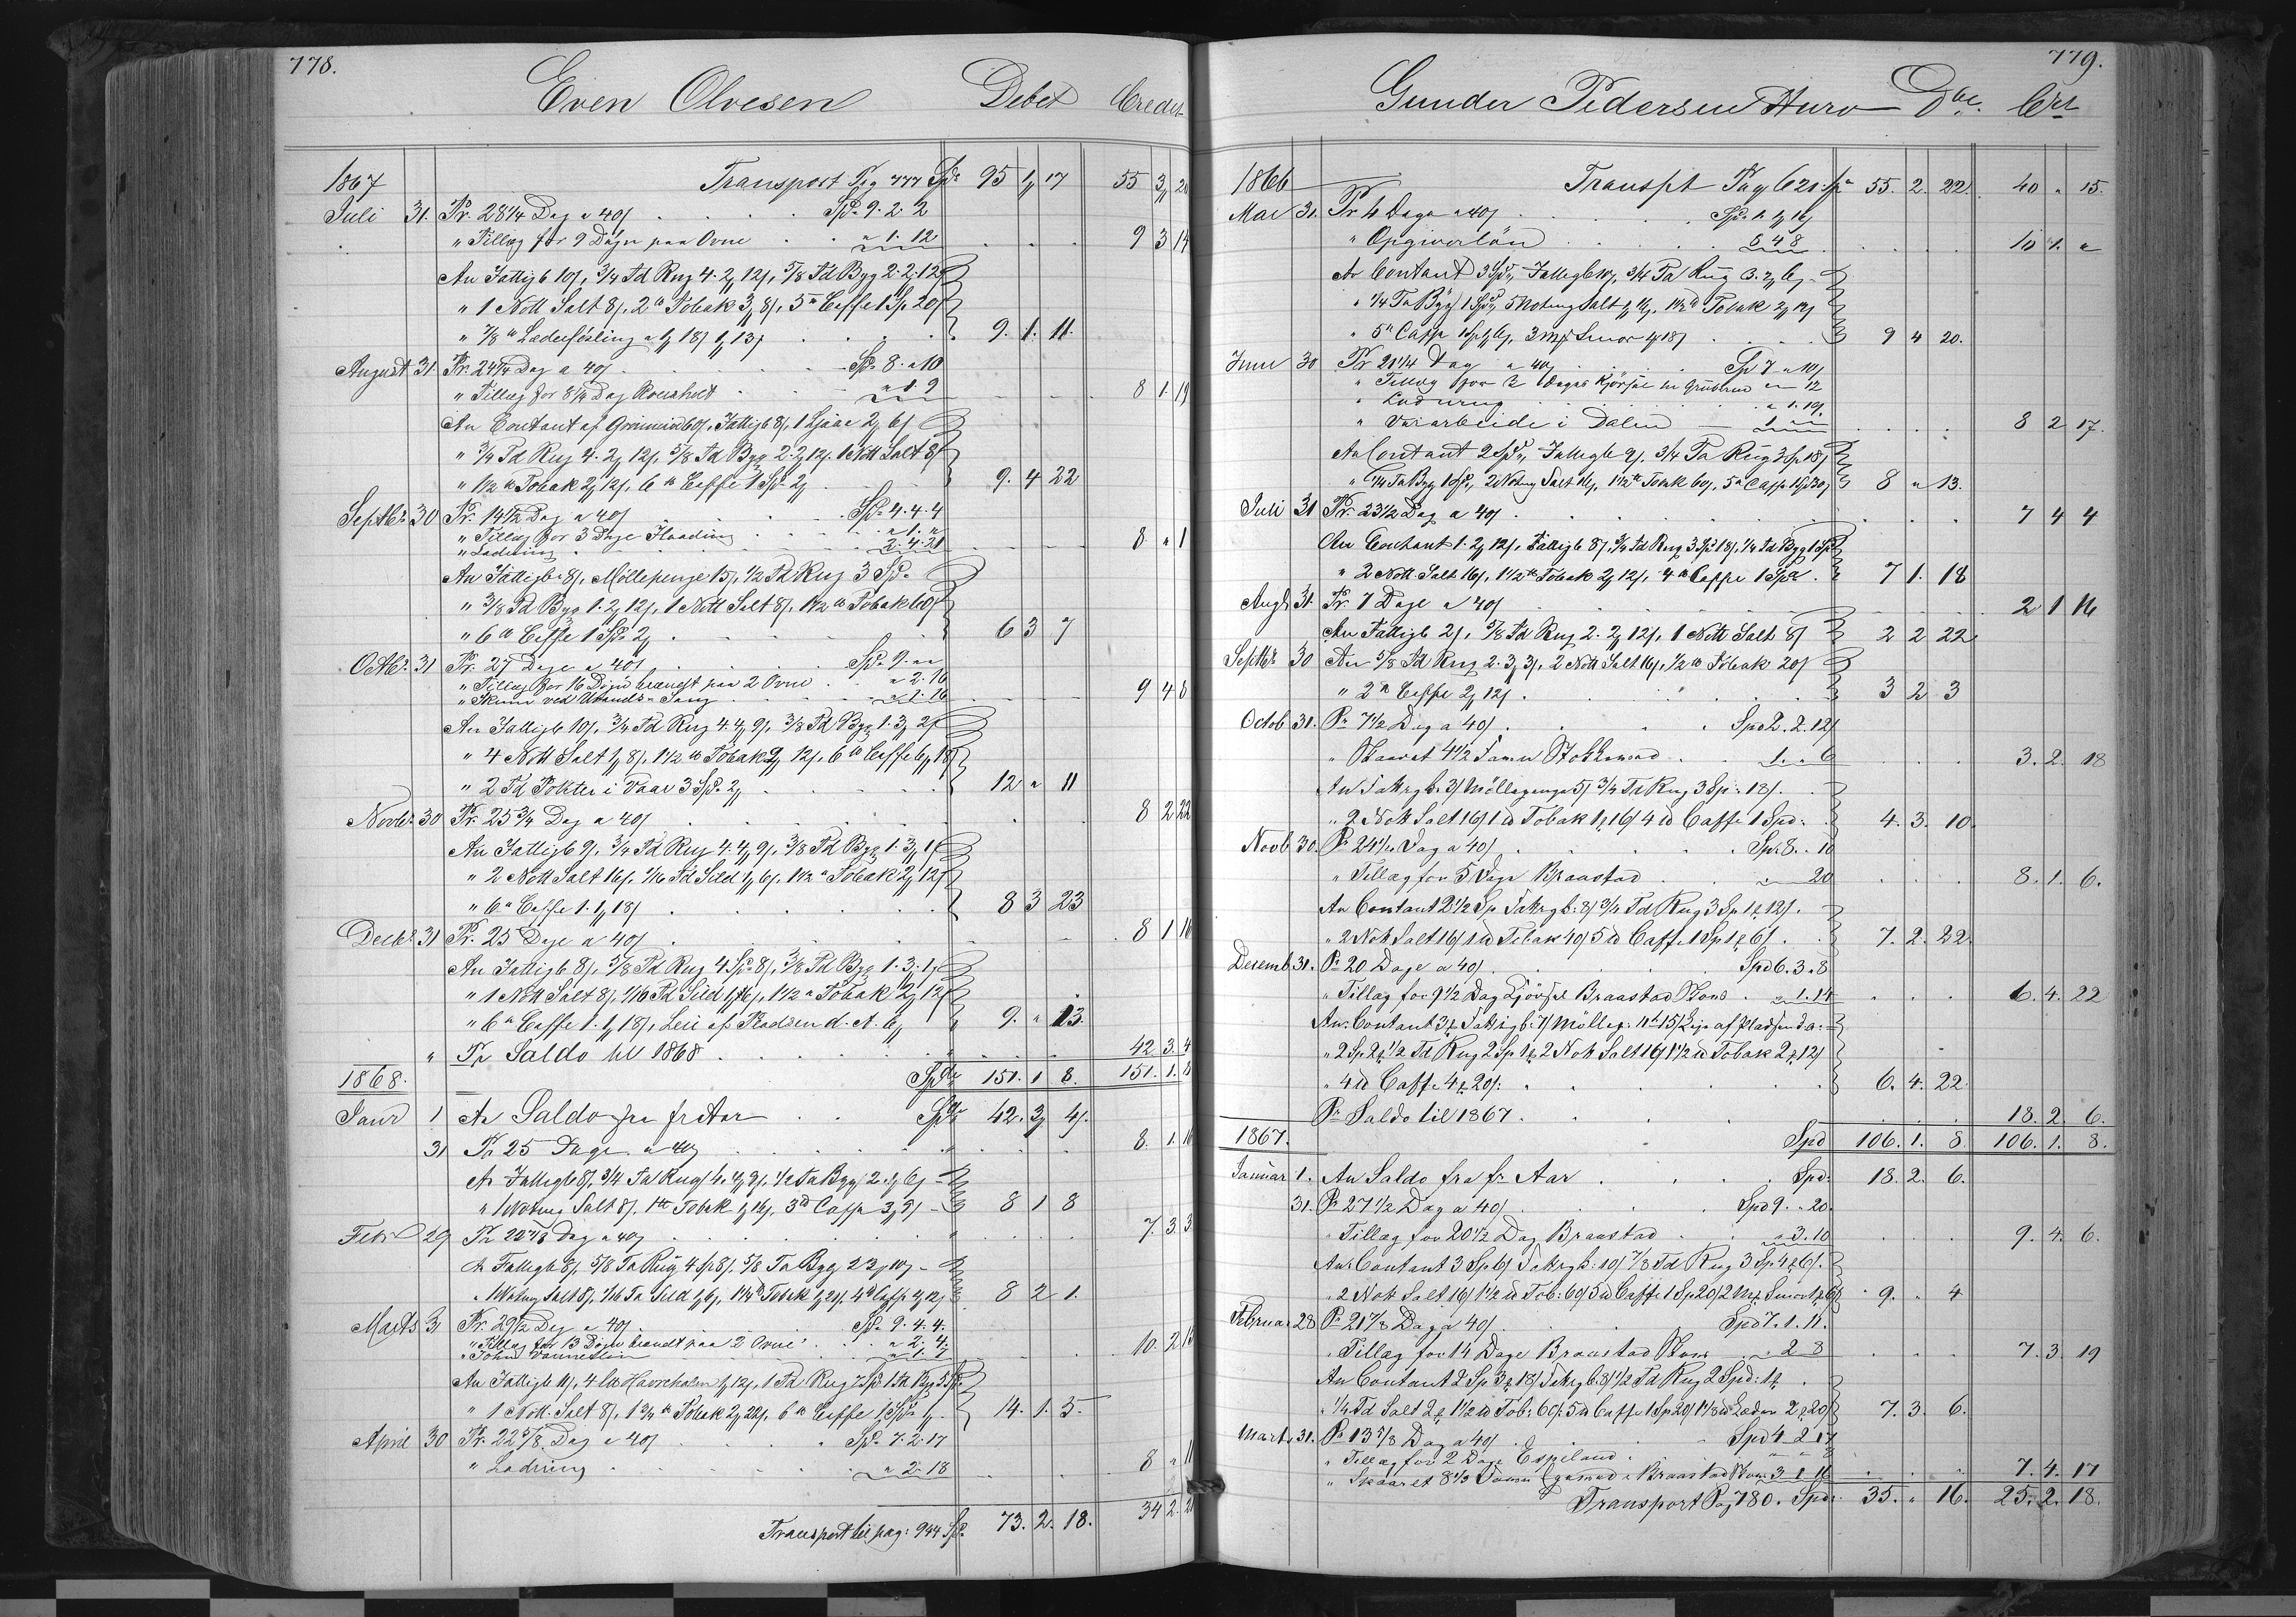 778.
Even Olvesen Debet Credit
1867 Transport Pag 777 Spd 95 1 17 55 3 20
Juli 31. Pr. 28 1/4 Dag a 40 Spd 9. 2. 2
" Tillæg for 9 Døgn paa Ovne " 1. 12 9 3 14
An Fattigb 10, 3/4 Td Rug 4. 2 12, 5/8 Td Byg 2. 2. 12
" 1 Nott Salt 8, 2 Tobak 3 8, 5 Caffe 1 Sp 20
" 7/8 Læderfösling a 1 18 1 13 9. 1. 11.
August 31. Pr. 24 1/4 Dag a 40 Spd 8. " 10
" Tillæg for 8 1/4 Dag " 1. 9 8 1. 19
An Contant af 60, Fattigb 8, 1 Ljaae 2 6
" 3/4 Td Rug 4. 2 12, 5/8 Td Byg 2. 2 12, 1 Nott Salt 8
" 1 1/2 Tobak 2 12, 6 Caffe 1 Spd 2 9. 4 22
Septbr. 30 Pr. 14 1/2 Dag a 40 Spd 4. 4. 4
" Tillæg for 3 Dage " 1. "
" Ladning 2. 4. 21 8 " 1
An Fattigb 8, Möllepenge 15, 1/2 Td Rug 3 Spd
" 3/8 Td Byg 1. 2 12, 1 Nott Salt 8, 1 1/2 Tobak 60
" 6 Caffe 1 Spd 2 6 3 7
Octbr. 31 Pr. 27 Dage a 40 Spd 9. "
" Tillæg for 16 Døgn brændt paa 2 Ovne " 2. 16
" 1. 16 9 4 8
An Fattigb 10, 3/4 Td Rug 4. 4 9, 3/8 Td Byg 1. 3 2
" 4 Nott Salt 1 8, 1 1/2 Tobak 2 12, 6 Caffe 6 18
" 2 Td Poteter i Vaar 3 Spd 2 12 " 11
Novbr. 30 Pr. 25 3/4 Dag a 40 8 2 22
An Fattigb 9, 3/4 Td Rug 4. 4 9, 3/8 Td Byg 1. 3 1
" 2 Nott Salt 16, 1/16 Td Sild 1 6, 1 1/2 Tobak 2 12
" 6 Caffe 1. 1 18 8 3 23
Decbr. 31 Pr. 25 Dage a 40 8 1 16
An Fattigb 8, 5/8 Td Rug 4 Spd 8, 3/8 Td Byg 1. 3. 1
" 1 Nott Salt 8, 1/16 Td Sild 1 16, 1 1/2 Tobak 2 12
" 6 Caffe 1. 1 18, Leie af Pladsen d. A. 6 9. " 13.
" Pr Saldo til 1868 42. 3. 4
1868. Spd 151. 1 8. 151. 1. 8
Janr 1 An Saldo fra fr Aar Spd 42. 3 4
31 Pr 25 Dage a 40 8. 1. 16
An Fattigb 8, 3/4 Ta Rug 4. 4 9, 1/2 Ta Byg 2. 6
" 1 Notung Salt 8, 1 Tobak 1 16, 3 Caffe 3 9 8 1 8
Febr 29 Pr 22 7/8 Dag a 40 7. 3. 3
An Fattigb 8, 5/8 Ta Rug 4 Sp 8, 5/8 Ta Byg 2 2 10
" 1 Notung Salt 8, 1/16 Ta Sild 1 6, 1 1/4 Tobak 1 21, 4 Caffe 4 12 8 2 1.
Marts 31 Pr. 29 1/2 Dag a 40 Spd 9. 4. 4.
" Tillæg for 13 Døgn brændt paa 2 Ovne " 2. 4.
10. 2 15
An Fattigb 11, 4 1 12, 1 Td Rug Spd 1 Td Byg 3 Spd
" 1 Nott. Salt 8, 1 3/4 Tobak 2 22, 6 Caffe 1 Spd 1 14. 1. 5
April 30 Pr. 22 5/8 Dag a 40 Spd 7. 2. 17
" Ladning " 2. 18 8 " 11
Transport til pag: 944 Spd 73. 2. 18. 34 2 21
779.
Gunder Pedersen Huro Dbe. Crt
1866 Transpt Pag 621 Spd 55. 2. 22. 40 " 15.
Mai 31. Pr 4 Dage a 40 Spd 1. 1 16
" Opgiverlön 8. 4. 8 10 1. "
An Contant 3 Spd, Fattigb 10, 3/4 Ta Rug 3. 2 6
" 1/4 Ta Byg 1 Spd, 5 Notung Salt 1 16, 1 1/2 Tobak 2 12
" 5 Caffe 1 Sp 1 6, 3 Mrk Smör 4 18 9 4 20.
Juni 30 Pr 21 1/4 Dag a 40 Sp 7 " 10
" Tillæg for 2 Dages Kjörsel " 12
" Ladning " 1. 19.
" Vararbeide i Dalen 1. 8 2 17.
An Contant 2 Spd, Fattigb 9, 3/4 Ta Rug 3 Sp 18
" 1/4 Ta Byg 1 Spd, 2 Notung Salt 16, 1 1/2 Tobak 60, 5 Caffe 1 Spd 20 8 " 13.
Juli 31 Pr. 23 1/2 Dag a 40 7 4 4
An Contant 1. 2 12, Fattigb 8, 3/4 Td Rug 3 Spd 18, 1/4 Td Byg 1 Spd
" 2 Nott. Salt 16, 1 1/2 Tobak 2 12, 4 Caffe 1 Spd 7 1. 18
Augt 31. Pr. 7 Dage a 40 2 1 16
An Fattigb 2, 5/8 Td Rug 2. 2 12, 1 Nott Salt 8 2 2 22
Septbr 30 An 5/8 Td Rug 2. 3 3, 2 Nott Salt 16, 1/2 Tobak 20
" 2 Caffe 2 12 3 2 3
Octob 31. Pr 7 1/2 Dag a 40 Spd 2. 2. 12
" Skaaret 4 1/2 Favn 1. " 6 3. 2. 18
An Fattigb. 3 Möllepenge 5 3/4 Td Rug 3 Sp: 18
" 2 Nott Salt 16 1 Tobak 1 16 4 Caffe 1 Spd: 4. 3. 10
Novb 30. Pr 24 1/4 Dag a 40 Sp: 8. " 10
" Tillæg for 5 Dage Braastad " 20 8. 1. 6.
An Contant 2 1/2 Sp Fattigb: 8 3/4 Td Rug 3 Sp 1 12.
" 2 Nott Salt 16 1 Tobak 40 5 Caffe 1 Sp 1 6 7. 2. 22
Desemb 31. Pr 20 Dage a 40 Spd 6. 3. 8
" Tillæg for 9 1/2 Dag Kjörsel Braastad " 1. 14 6. 4. 22
An Contant 3 Fattigb: 7 Mölleg: 15 Leje af Pladsen d.a.:
" 2 Sp 2 1/2 Td Rug 2 Sp 1 2 Nott Salt 16 1 1/2 Tobak 2 12
" 4 Caffe 4 20: 6. 4. 22
Pr Saldo til 1867. 18. 2. 6.
1867. Spd 106. 1. 8 106. 1. 8.
Januar 1. An Saldo fra fr. Aar Spd: 18. 2. 6.
31. Pr 27 1/2 Dag a 40 Spd 9. " 20
" Tillæg for 20 1/2 Dag Braastad " 3. 10 9. 4. 6.
An Contant 3 Sp 6 Fattigb: 10 7/8 Td Rug 3 Sp 4 6.
" 2 Nott Salt 16 1 1/2 Tob: 60 5 Caffe 1 Sp 20 2 Mrk Smör 1 6 9. " 4
Februar 28 Pr 21 7/8 Dag a 40 Spd 7. 1. 11.
" Tillæg for 14 Dage Braastad " 2 8 7. 3. 19
An Contant 2 Sp 3 18 Fattigb: 8 1/2 Td Rug 2 Spd: 1
" 1/4 Td Salt 2 1 1/2 Tob: 60: 5 Caffe 1 Sp 20 1 1/8 Læder 2 20 7. 3. 6.
Marts 31. Pr 13 7/8 Dag a 40 Spd 4 2 17
" Tillæg for 2 Dage Espeland " " 8
" Skaaret 8 1/3 Favn Braastad 3 1 16 7. 4. 17
Transport Pag 780. Spd: 35. " 16. 25. 2. 18.